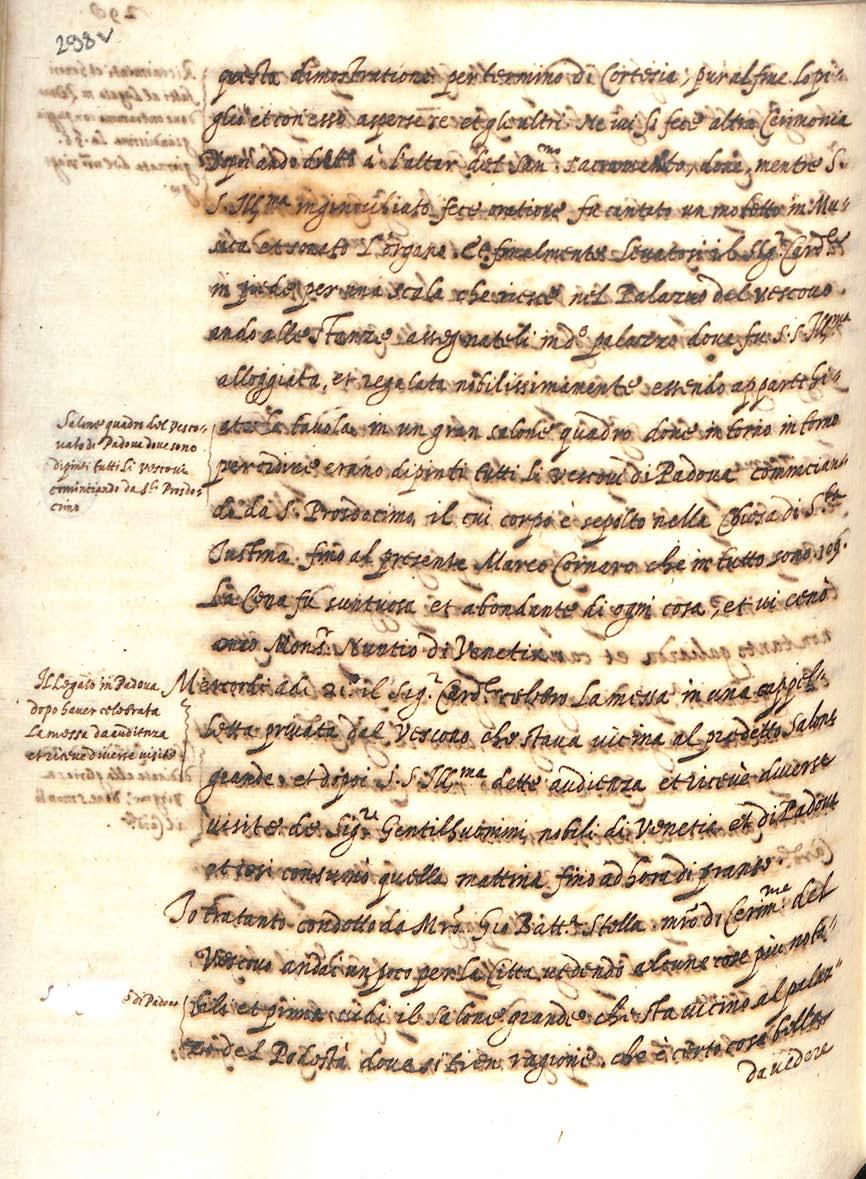 298v
questa dimostratione per termino di Cortesia, pur al fine lo pi-
gliò et con esso asperse se et gli altri. Ne ivi si fece altra Cerimonia
Dopoi andò dritto à l'altar del Sanmo sacramento, dove, mentre S.
S. Illma inginocchiato fece oratione fu cantato un motetto in Mu-
sica et sonato l'organo. Et finalmente levatosi il Sigr Cardle
in piede per una scala che riesce nel Palazzo del vescovo
andò alle stanze assegnateli in do palazzo dove fu S. S. Illma
alloggiata, et regalata nobilissimamente essendo apparechi-
ata la tavola in un gran salone quadro dove intorno intorno
per ordine erano dipinti tutti li vescovi di Padova comincian-
do da S. Prosdocimo il cui corpo è sepolto nella Chiesa di Sta
Justina fino al presente Marco Cornaro che in tutto sono 109.
La Cena fu suntuosa et abondante di ogni cosa, et vi cenò
anco Monsr Nuntio di Venetia
Salone quadro del Vesco-
vato di Padova dove sono
dipinti tutti li vescovi
cominciando da Sto Prosdo-
cimo
Mercordi adi 21o il Sigr Cardle celebrò la messa in una cappel-
letta privata dal Vescovo che stava vicina al predetto Salone
grande, et dopoi S. S. Illma dette audienza et ricevè diverse
visite de Sigri Gentilhuomini nobili di Venetia et di Padova
et così consumò quella mattina fino ad hora di pranso.
Il Legato in Padova
dopo haver celebrata
la messa da audienza
et riceve diverse visite
Io tratanto condotto da Mro Gio Batta Stella mro di Cerimme del
Vescovo andai un poco per la Citta vedendo alcune cose più nota-
bili et prima vidi il salone grande che sta vicino al palaz-
zo del Podestà dove si tien ragione, che è certo cosa bella
di Padova
da vedere